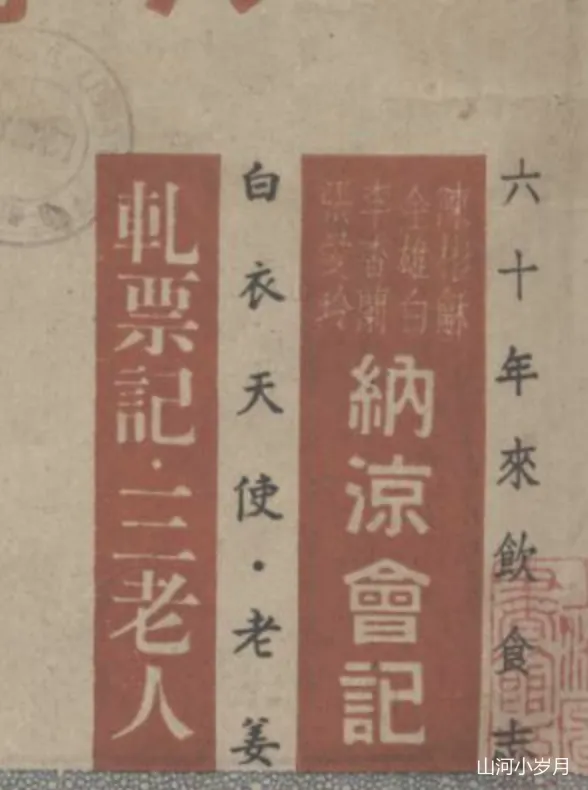 六十年來飲食志
陳彬龢
金雄白
李香蘭
張愛玲
納涼會記
白衣天使·老姜
軋票記·三老人
山河小岁月